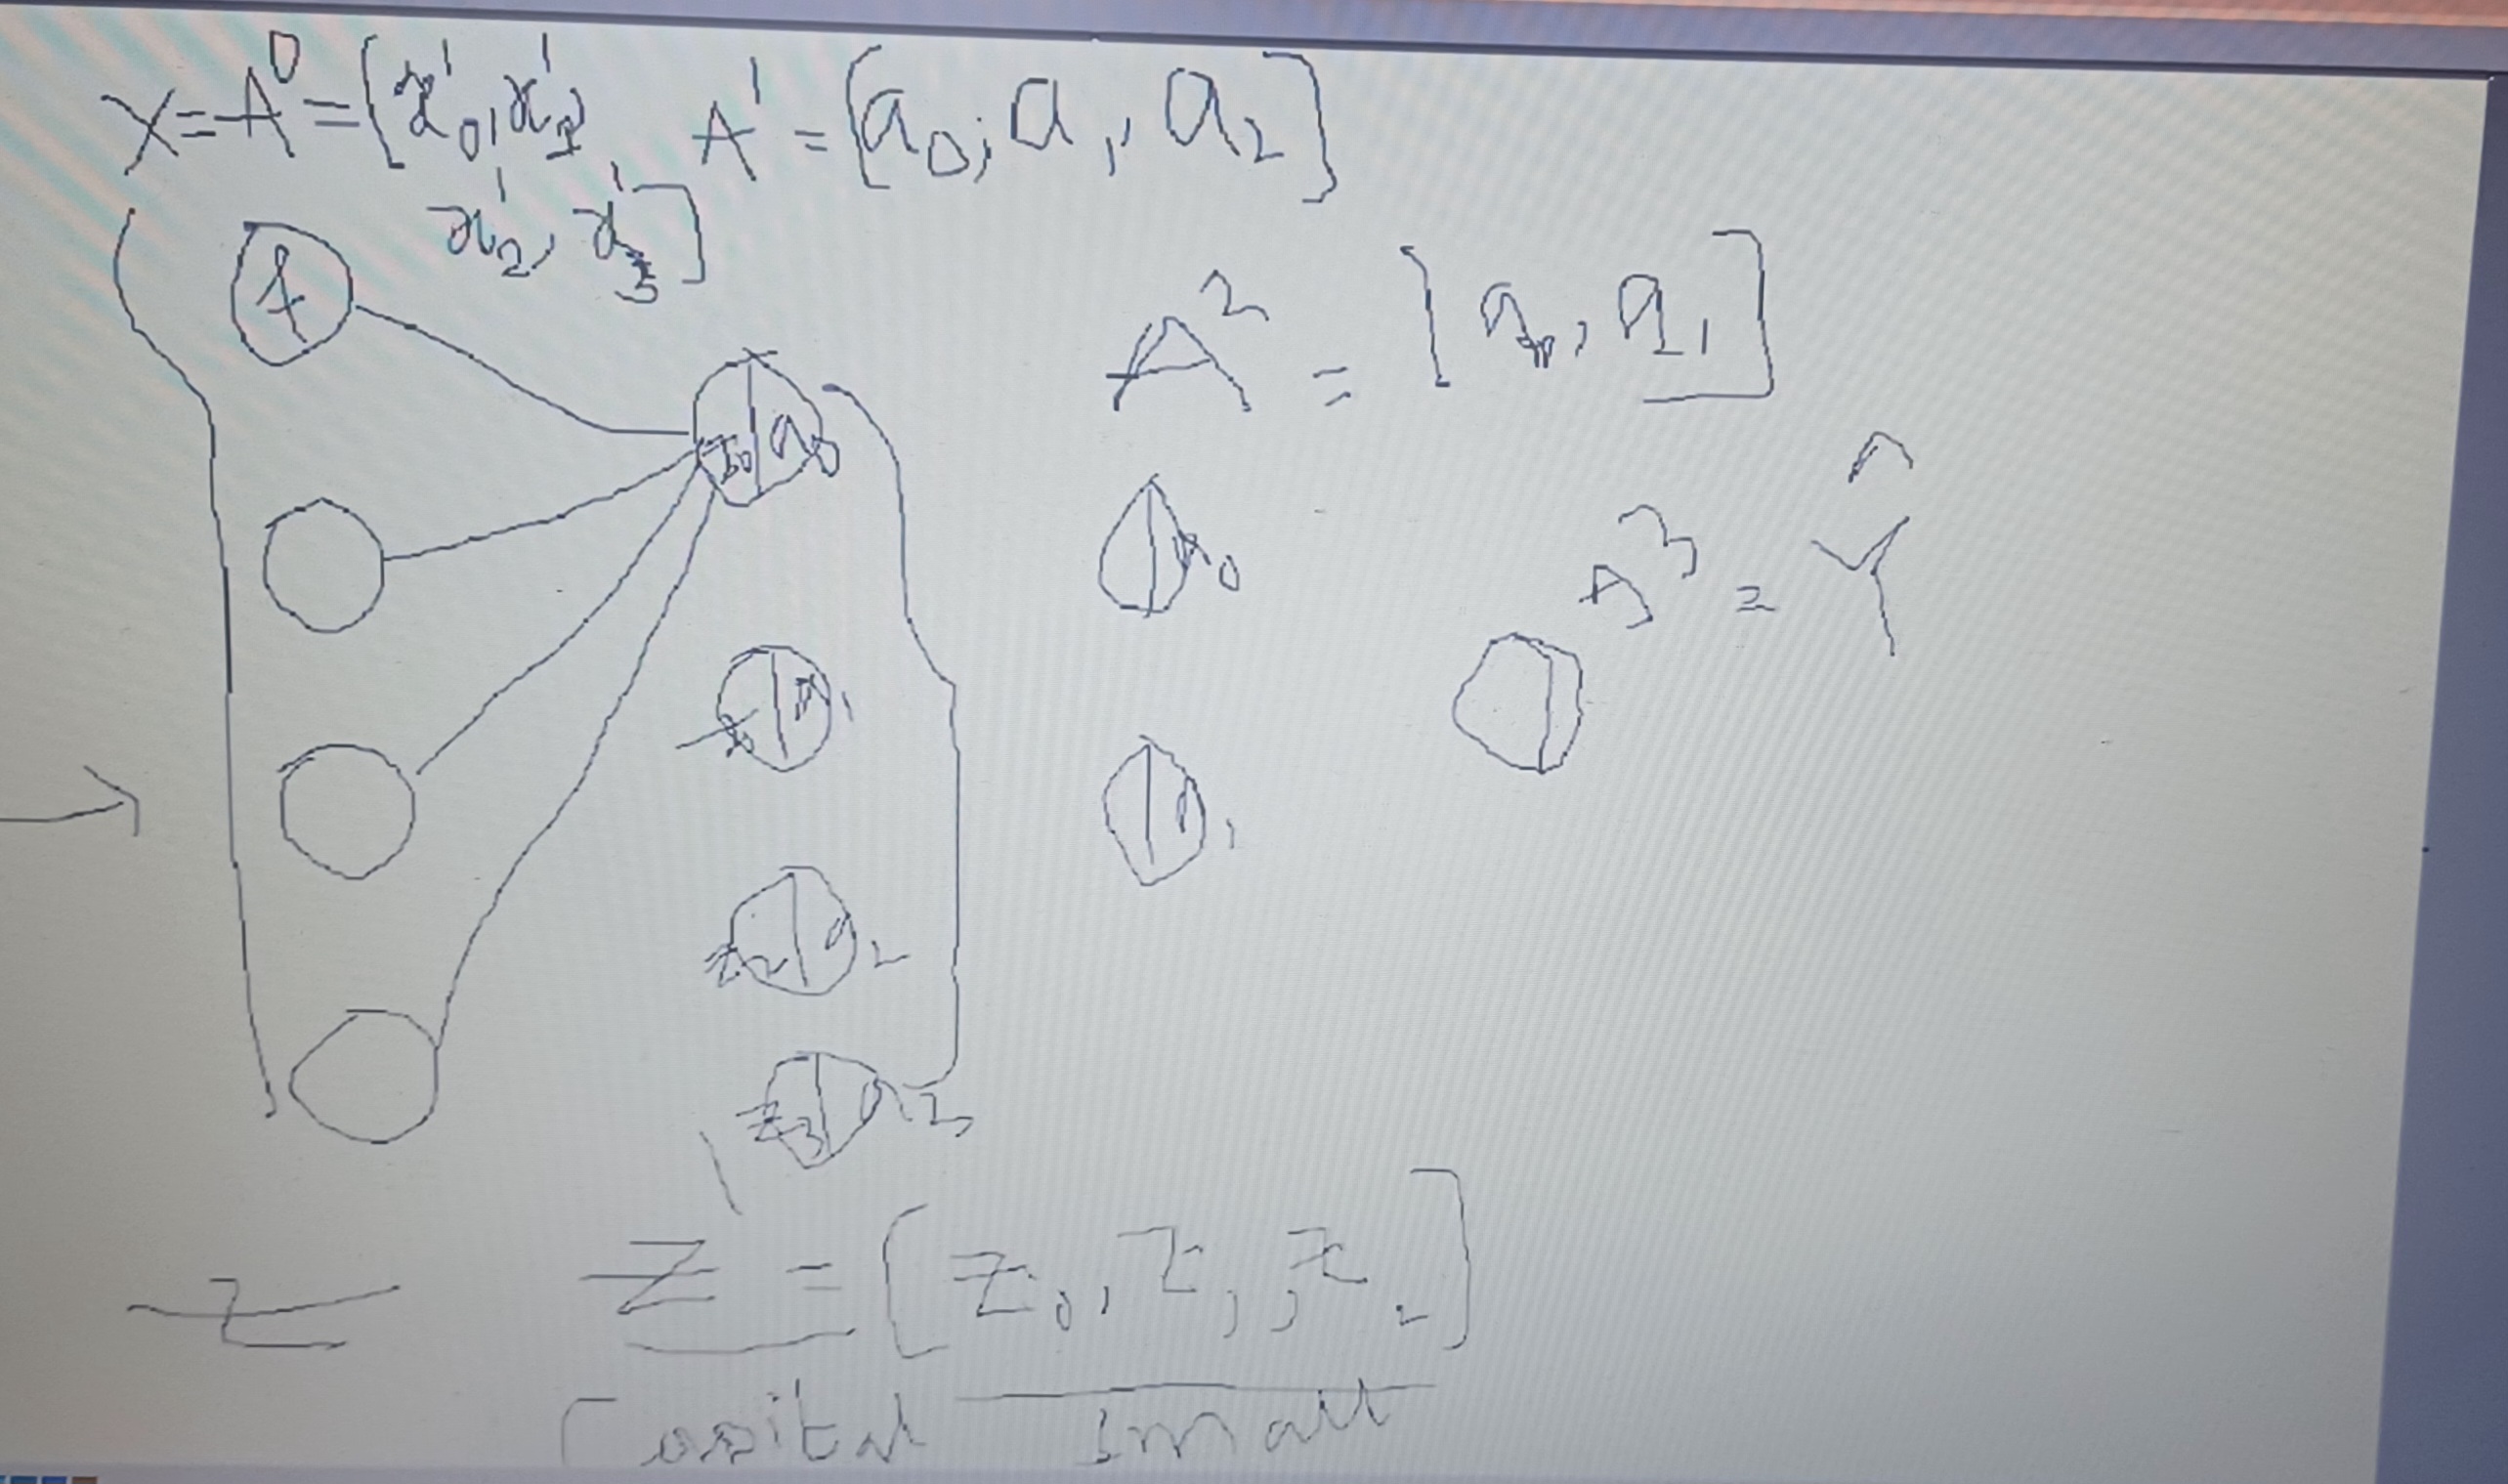 X = A⁰ = [x¹₀, x¹₁
x¹₂, x¹₃]
A¹ = [a₀, a₁, a₂]
A² = [a₀, a₁]
A³ = Ŷ
1
z₀ a₀
a₁
z₂ a₂
z₃ a₃
a₀
a₁
z
Z = [z₀, z₁, z₂]
Capital small